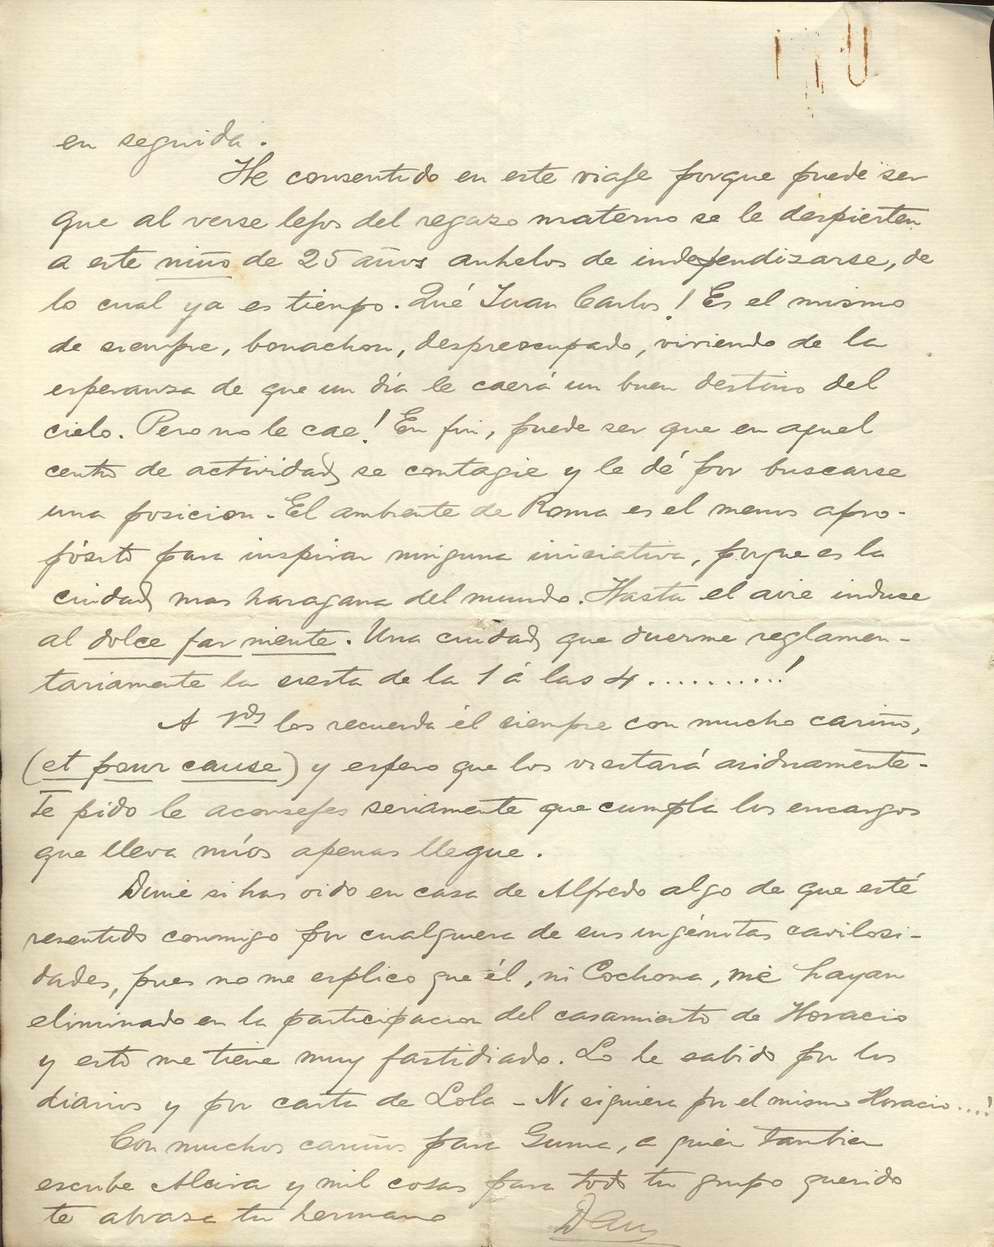 en seguida.
He consentido en este viaje porque puede ser
que al verse lejos del regazo materno se le despierten
a este niño de 25 años anhelos de independizarse, de
lo cual ya es tiempo. Qué Juan Carlos! Es el mismo
de siempre, bonachon, despreocupado, viviendo de la
esperanza de que un día le caerá un buen destino del
cielo. Pero no le cae! En fin, puede ser que en aquel
centro de actividad, se contagie y le dé por buscarse
una posicion. El ambiente de Roma es el menos apro-
pósito para inspirar ninguna iniciativa, porque es la
ciudad mas haragana del mundo. Hasta el aire induce
al dolce far niente. Una ciudad que duerme reglamen-
tariamente la siesta de la 1 á las 4 ..........!
A Vds los recuerda él siempre con mucho cariño,
(et pour cause) y espero que los visitará asiduamente-
Te pido le aconsejes seriamente que cumpla los encargos
que lleva míos apenas llegue.
Dime si has oido en casa de Alfredo algo de que esté
resentido conmigo por cualquiera de sus ingénitas cavilosi-
dades, pues no me esplico que él, ni Cochona, me hayan
eliminado en la participacion del casamiento de Horacio
y esto me tiene muy fastidiado. Lo he sabido por los
diarios y por carta de Lola - Ni siquiera por el mismo Horacio....!
Con muchos cariños para Guma, a quien tambien
escribe Alcira y mil cosas para todo tu grupo querido
te abraza tu hermano